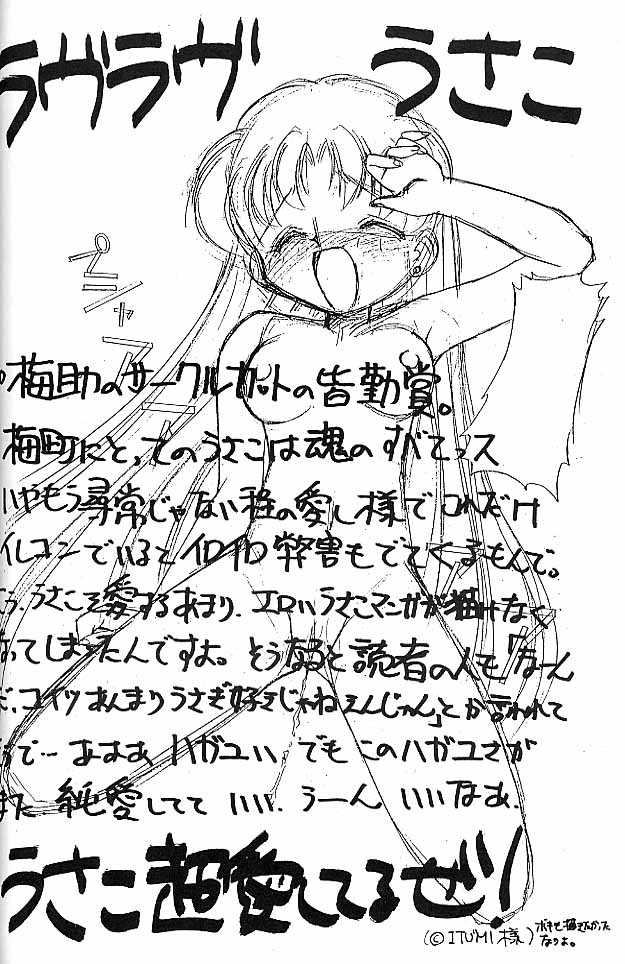 ラヴラヴ うさこ
ペシャアーー
梅助のサークルカットの皆勤賞。
梅町にとってのうさこは魂のすべてっス
いやもう尋常じゃない程の愛し様でこれだけ
イレコンでいるとイロイロ弊害もでてくるもんで。
うさこを愛するあまり、エロいうさこマンガが描けなく
なってしまったんですよ。そうなると読者の人も「なーん
だ、コイツあんまりうさぎ好きじゃねえんじゃん」とか言われて
で…あああ ハガユい でもこのハガユさが
また 純愛してて いい、うーん いいなあ、
うさこ超愛してるぜ!
(©ITUMI様)
なりよ。